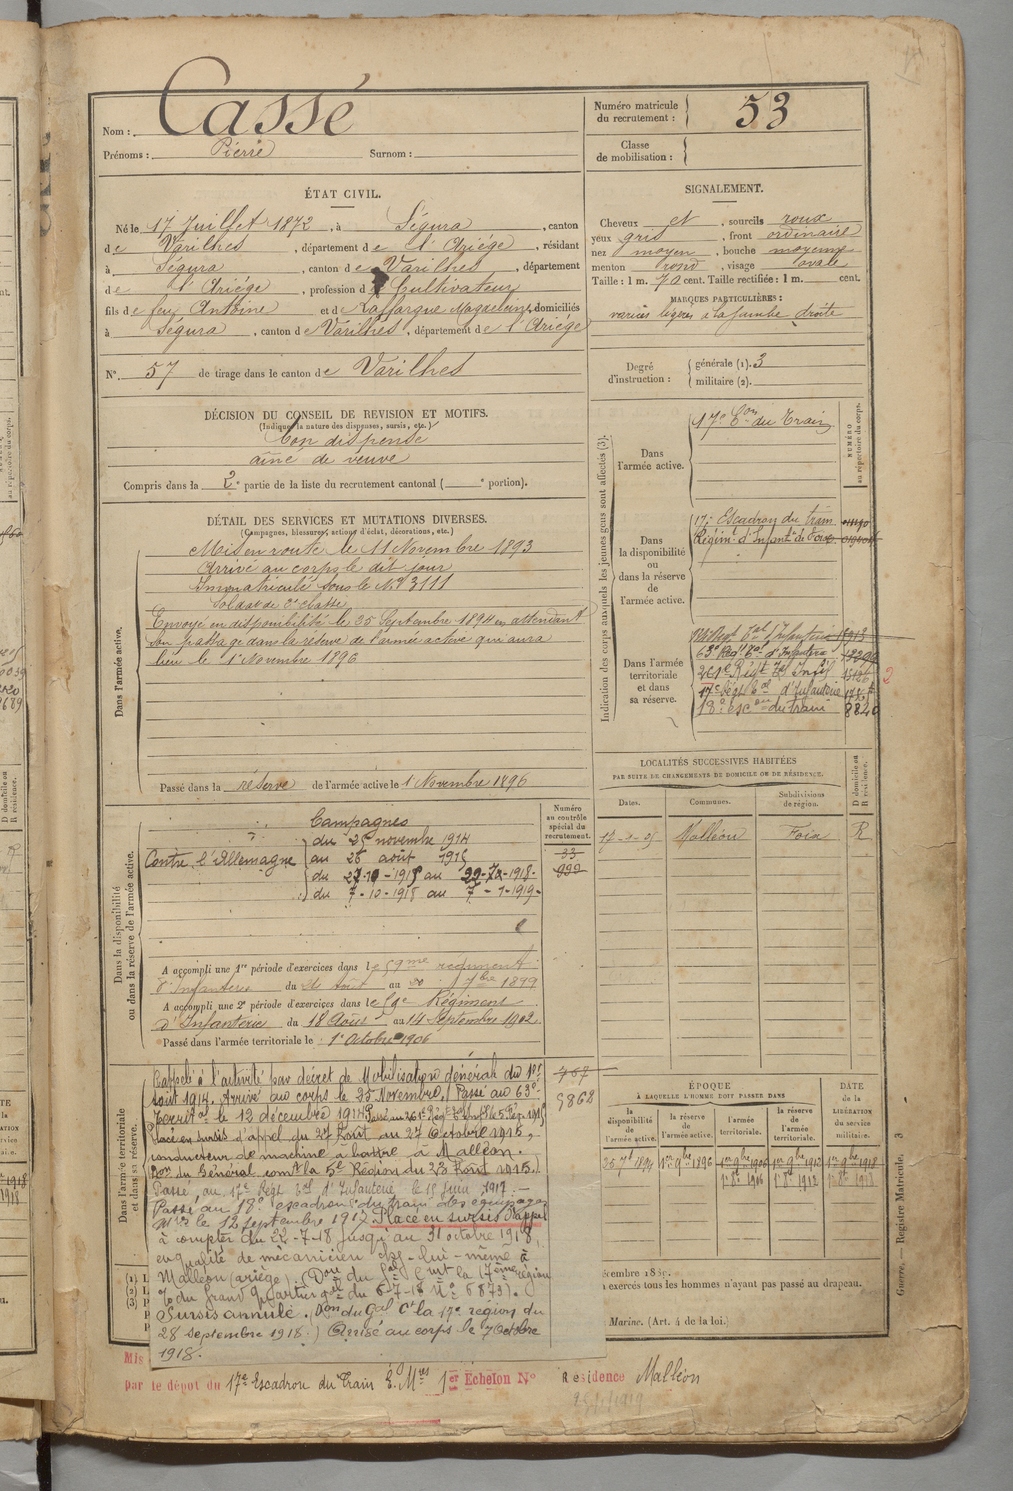 Nom : Cassé
Prénoms : Pierre Surnom :
Numéro matricule du recrutement : 53
Classe de mobilisation :
ÉTAT CIVIL.
Né le 17 Juillet 1872, à Ségura, canton
de Varilhes, département de l'Ariège, résidant
à Ségura, canton de Varilhes, département
de l'Ariège, profession de Cultivateur
fils de feu Antoine et de Laffargue Magdeleine, domiciliés
à Ségura, canton de Varilhes, département de l'Ariège
N° 57 de tirage dans le canton de Varilhes
SIGNALEMENT.
Cheveux et, sourcils roux
yeux gris, front ordinaire
nez moyen, bouche moyenne
menton rond, visage ovale
Taille : 1 m. 70 cent. Taille rectifiée : 1 m. cent.
MARQUES PARTICULIÈRES :
varices légères à la jambe droite
Degré d'instruction : générale (1). 3
militaire (2).
DÉCISION DU CONSEIL DE REVISION ET MOTIFS.
(Indiquer la nature des dispenses, sursis, etc.)
Bon dispensé
aîné de veuve
Compris dans la 2e partie de la liste du recrutement cantonal ( e portion).
DÉTAIL DES SERVICES ET MUTATIONS DIVERSES.
(Campagnes, blessures, actions d'éclat, décorations, etc.)
Dans l'armée active.
Mis en route le 11 Novembre 1893
Arrivé au corps le dit jour
Immatriculé sous le N° 3111
Soldat de 2e classe
Envoyé en disponibilité le 25 Septembre 1894 en attendant
son passage dans la réserve de l'armée active qui aura
lieu le 1er Novembre 1896
Passé dans la réserve de l'armée active le 1er Novembre 1896
Indication des corps auxquels les jeunes gens sont affectés (3).
NUMÉRO au répertoire du corps.
Dans l'armée active.
17e Eon du Train
Dans la disponibilité ou dans la réserve de l'armée active.
17e Escadron du train
Régimt d'Infantie de Foix
Dans l'armée territoriale et dans sa réserve.
63e Regt Ter d'Infanterie
261e Régt Ter Infie
17e Régt Ter d'Infanterie
18e escon du train 8820
2
LOCALITÉS SUCCESSIVES HABITÉES
PAR SUITE DE CHANGEMENTS DE DOMICILE OU DE RÉSIDENCE.
Dates. Communes. Subdivisions de région. D domicile ou R résidence.
Malléon Foix R
Dans la disponibilité ou dans la réserve de l'armée active.
Numéro au contrôle spécial du recrutement.
33
999
Campagnes
Contre l'Allemagne
du 25 novembre 1914
au 26 août 1915
du 7-10-1918 au 7-1-1919
A accompli une 1re période d'exercices dans le 59me régiment
d'Infanterie du août au 7bre 1899
A accompli une 2e période d'exercices dans le 59e Régiment
d'Infanterie du 18 Août au 14 Septembre 1902.
Passé dans l'armée territoriale le 1er Octobre 1906
Dans l'armée territoriale et dans sa réserve.
Rappelé à l'activité par décret de Mobilisation Générale du 1er
Août 1914. Arrivé au corps le 25 Novembre. Passé au 63e
Territal le 12 décembre 1914
Placé en sursis d'appel du 27 Août au 27 Octobre 1915,
conducteur de machine à battre à Malléon.
Don du Général comt la 5e Région du 23 Août 1915.
Passé au 17e Régt Ter d'Infanterie le 15 Juin 1917.
Passé au 18e escadron du train des équipages
Mres le 12 septembre 1917. Placé en sursis d'appel
à compter du 22-7-18 jusqu'au 31 octobre 1918,
en qualité de mécanicien chez lui-même à
Malléon (ariège). (Don du Gal Cmt la 17ème région
du Grand Quartier Gal du 6-7-18 N° 6873).
Sursis annulé. (Don du Gal Ct la 17e région du
28 Septembre 1918.) Arrivé au corps le 7 Octobre
1918.
9862
ÉPOQUE
À LAQUELLE L'HOMME DOIT PASSER DANS
la disponibilité de l'armée active. la réserve de l'armée active. l'armée territoriale. la réserve de l'armée territoriale.
DATE de la LIBÉRATION du service militaire.
25 7bre 1894 1er 9bre 1896 1er 9bre 1906 1er 9bre 1912 1er 9bre 1918
1er 8bre 1906 1er 8bre 1912 1er 8bre 1918
exercés tous les hommes n'ayant pas passé au drapeau.
Marine. (Art. 4 de la loi.)
Guerre. — Registre Matricule. 3
Mis
par le dépôt du 17e Escadron du Train E. Mres 1er Echelon N° Résidence Malléon